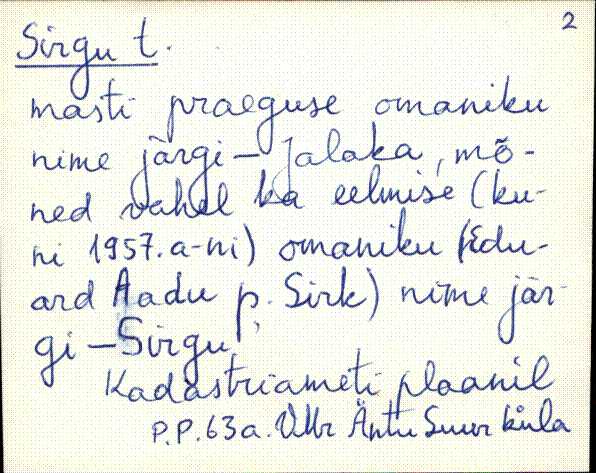 2
Sirgu t.
masti praeguse omaniku
nime järgi - Jalaka, mõ-
ned vahel ka eelmise (ku-
ni 1957.a-ni) omaniku (Edu-
ard Aadu p. Sirk) nime jär-
gi - Sirgu.
Kadastriameti plaanil
P.P.63a. VMr Äntu Suur küla